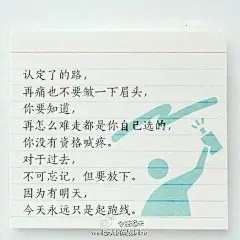 认定了的路，
再痛也不要皱一下眉头，
你要知道，
再怎么难走都是你自己选的，
你没有资格喊疼。
对于过去，
不可忘记，但要放下。
因为有明天，
今天永远只是起跑线。